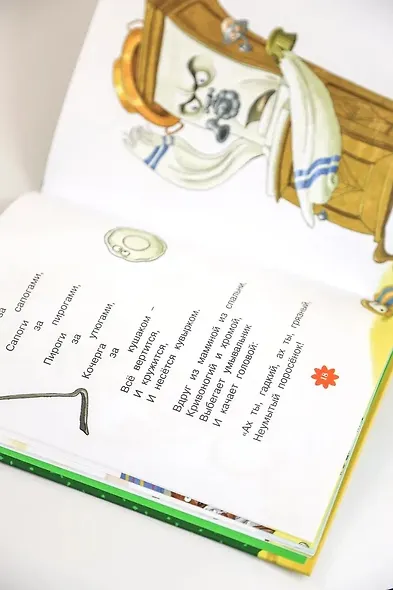 за сапогами,
Сапоги
за пирогами,
Пироги
за утюгами,
Кочерга
за кушаком –
Всё вертится,
И кружится,
И несётся кувырком.
Вдруг из маминой из спальни,
Кривоногий и хромой,
Выбегает умывальник
И качает головой:
«Ах ты, гадкий, ах ты, грязный,
Неумытый поросёнок!